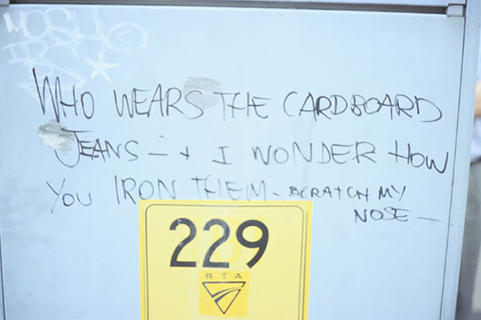 MOSH
WHO WEARS THE CARDBOARD
JEANS - + I WONDER HOW
YOU IRON THEM - SCRATCH MY
NOSE -
229
RTA